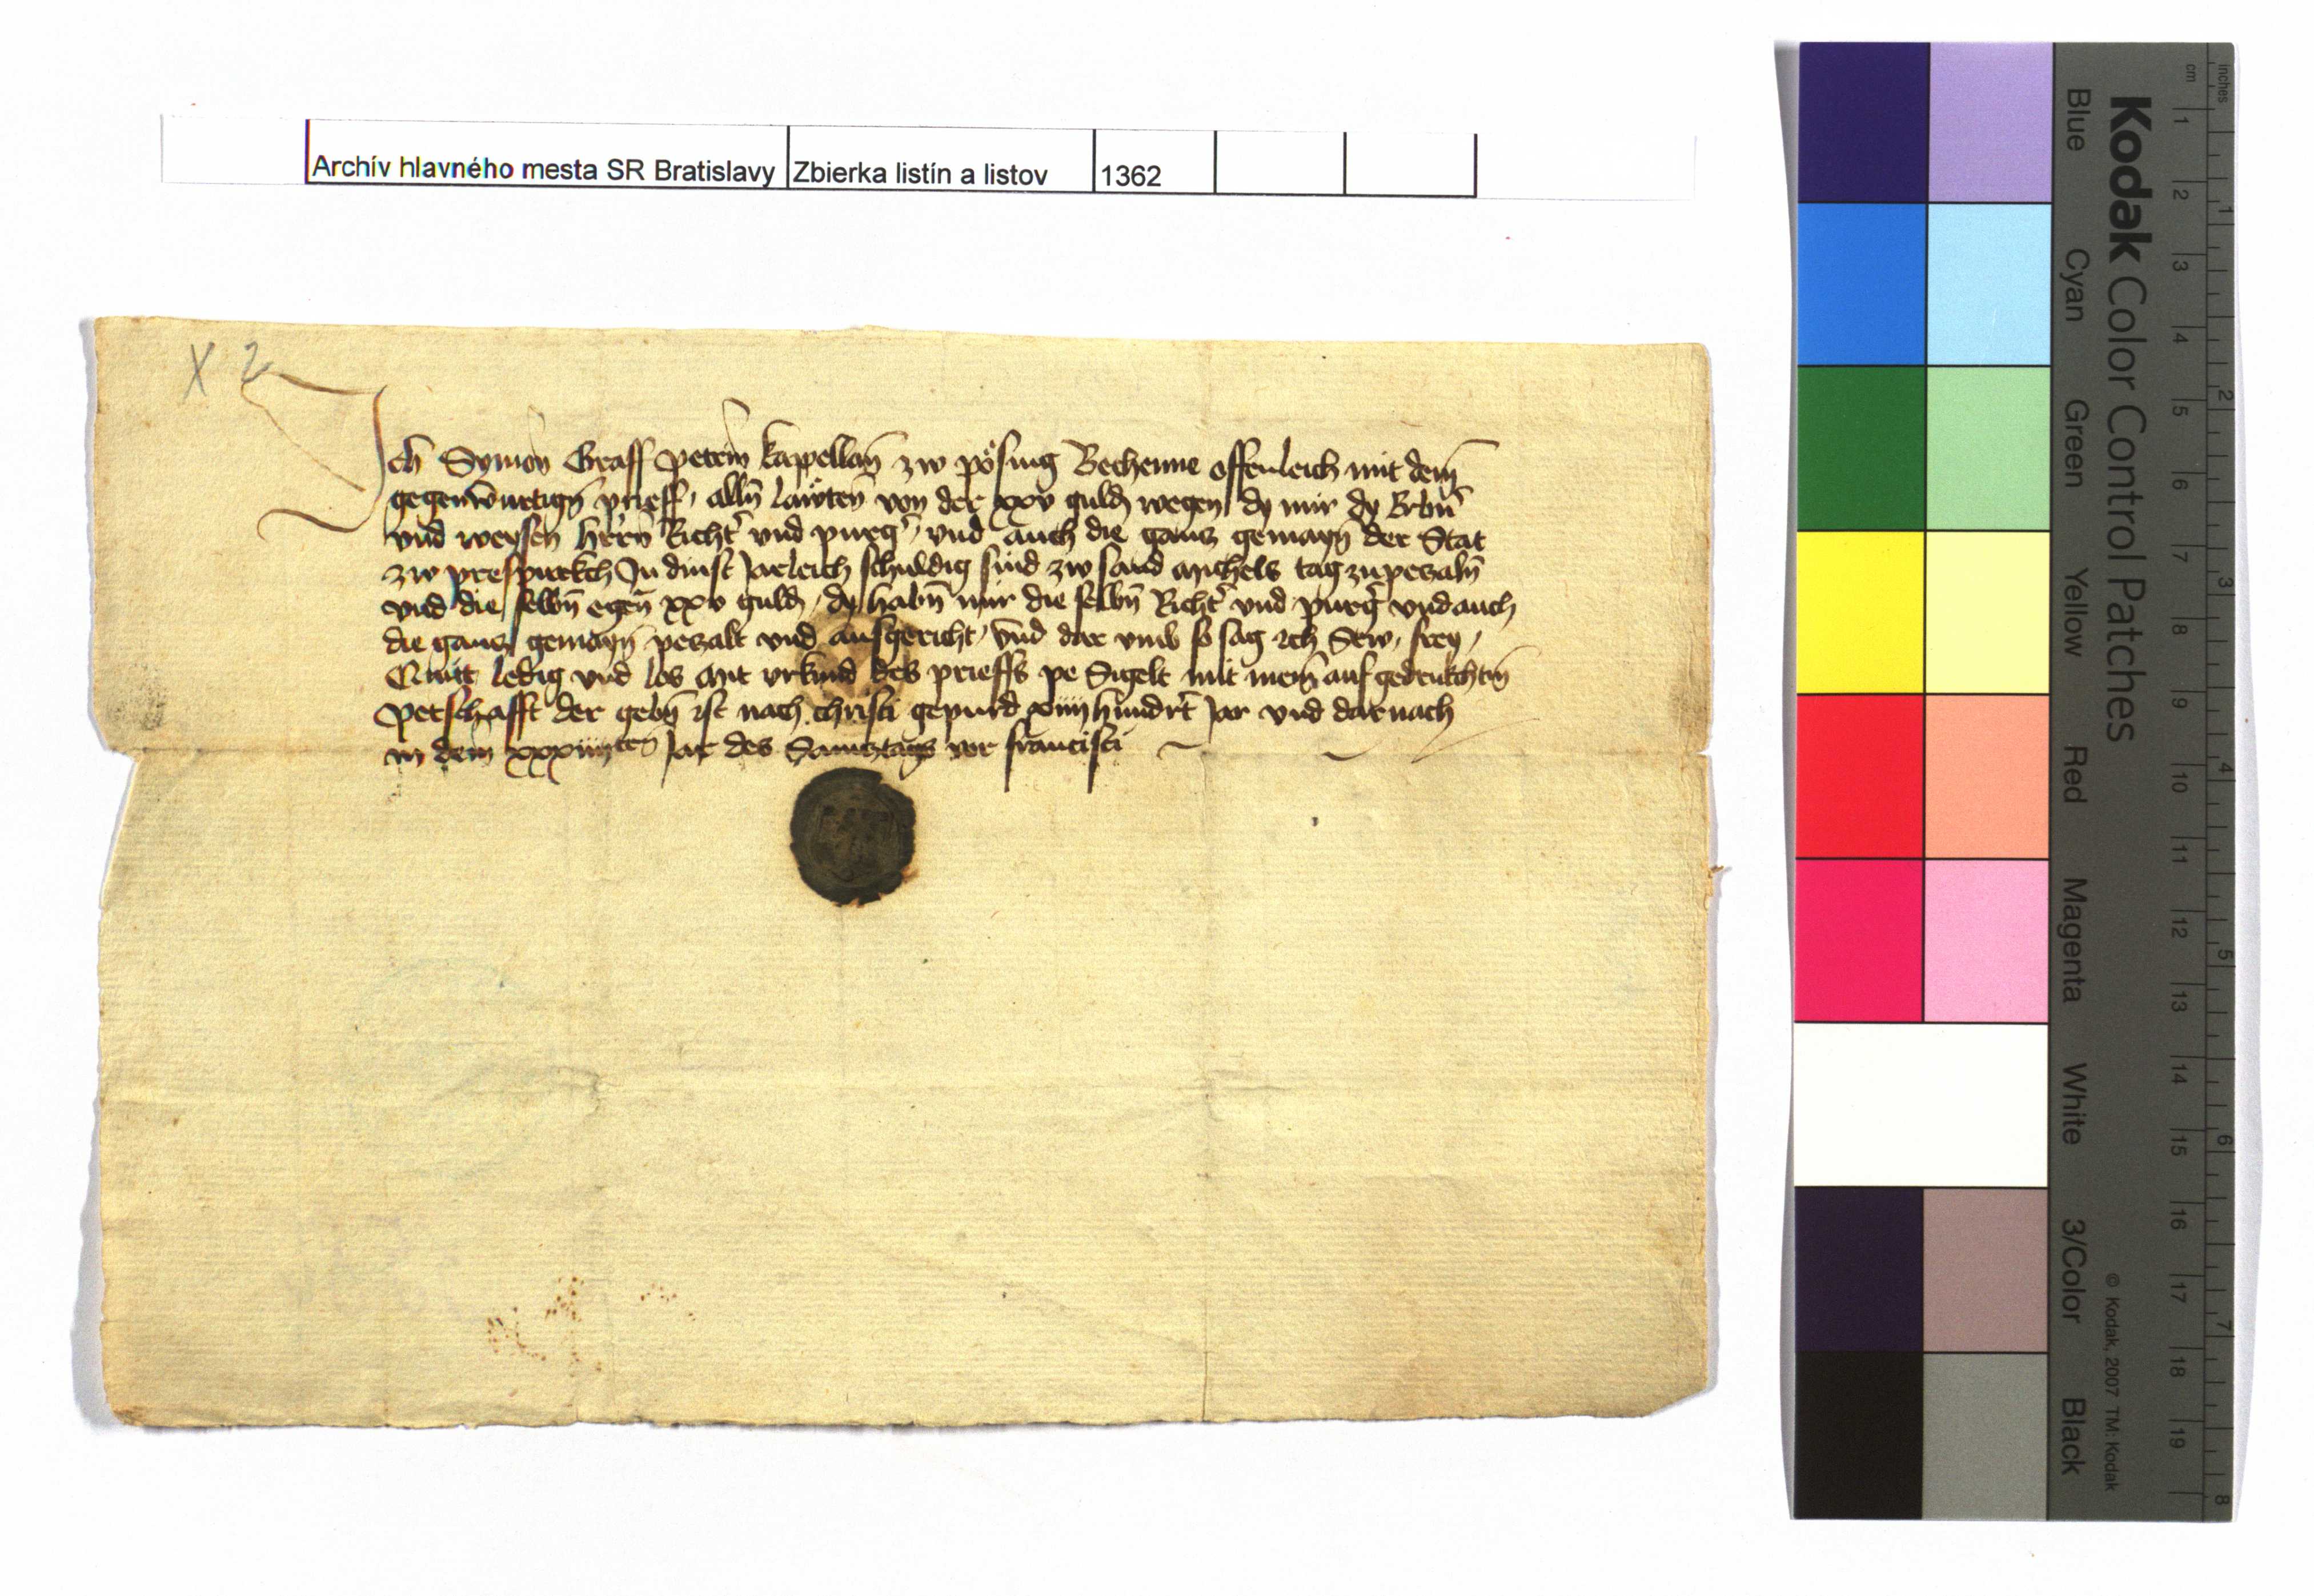 Archív hlavného mesta SR Bratislavy Zbierka listín a listov 1362
X 2
Ich Symon Graff petrin͂ kappellan͂ zw pösing Bechenne offenleich mit dem̄
gegenwurtign̄ prieff, alln̄ läwten von der xxv guld wegen dy mir dy Erbn̄
vnd weysen hern̄ Richt͛ vnd purg͛ vnd auch die gancz gemayn̄ der Stat
zw prespurkch In dinst Jarleich schuldig sind zw sand Michels tag zupezaln̄
vnd die selbn̄ egen̄ xxv guld, dy habn̄ mir die selbn̄ Richt͛ vnd purg͛ vnd auch
die gancz gemayn̄ peczalt vnd ausgericht, vnd dar vmb so sag ich Sew, frey,
Quitt ledig vnd los Mit vrkund des prieffs pe Sigelt mit mein̄ auf gedrukchtn̄
petschafft der gebn̄ ist nach christi gepurd xiiii hundr̄t Jar vnd darnach
in dem xxxiiiiten Jar des Samcztags vor francisci
Kodak Color Control Patches
Blue Cyan Green Yellow Red Magenta White 3/Color Black
© Kodak, 2007 TM: Kodak
cm 1 2 3 4 5 6 7 8 9 10 11 12 13 14 15 16 17 18 19
inches 1 2 3 4 5 6 7 8